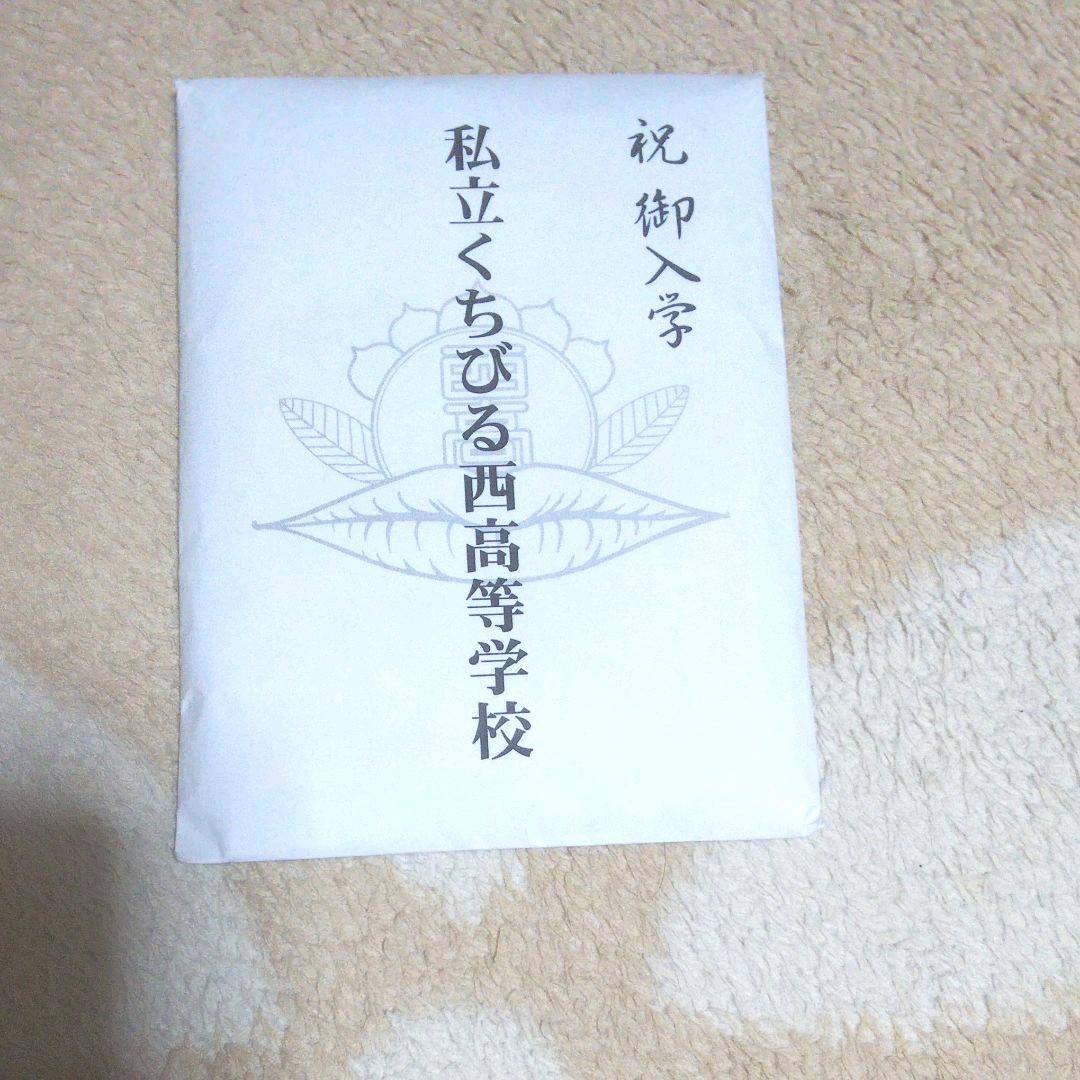 祝 御入学
私立くちびる西高等学校
西高